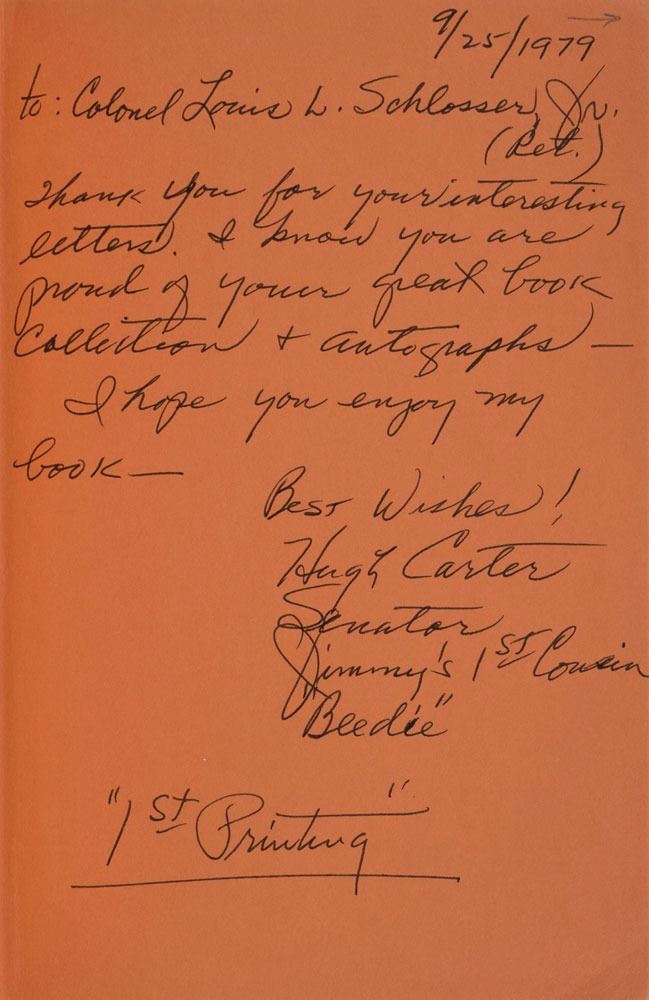 9/25/1979
to: Colonel Louis L. Schlosser, Jr.
(Ret.)
Thank you for your interesting
letters. I know you are
proud of your great book
collection + autographs —
I hope you enjoy my
book —
Best Wishes!
Hugh Carter
Senator
Jimmy's 1st Cousin
Beedie"
"1st Printing"